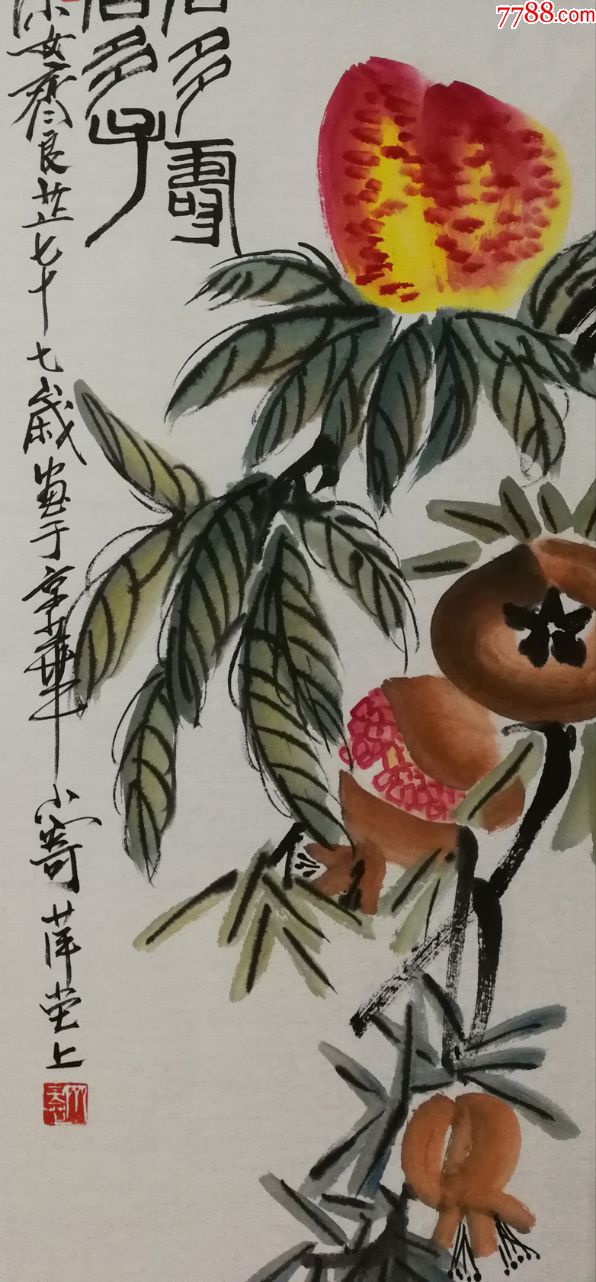 7788.com
多壽
多子
小女齊良芷七十七歲畫于京華小寄萍堂上